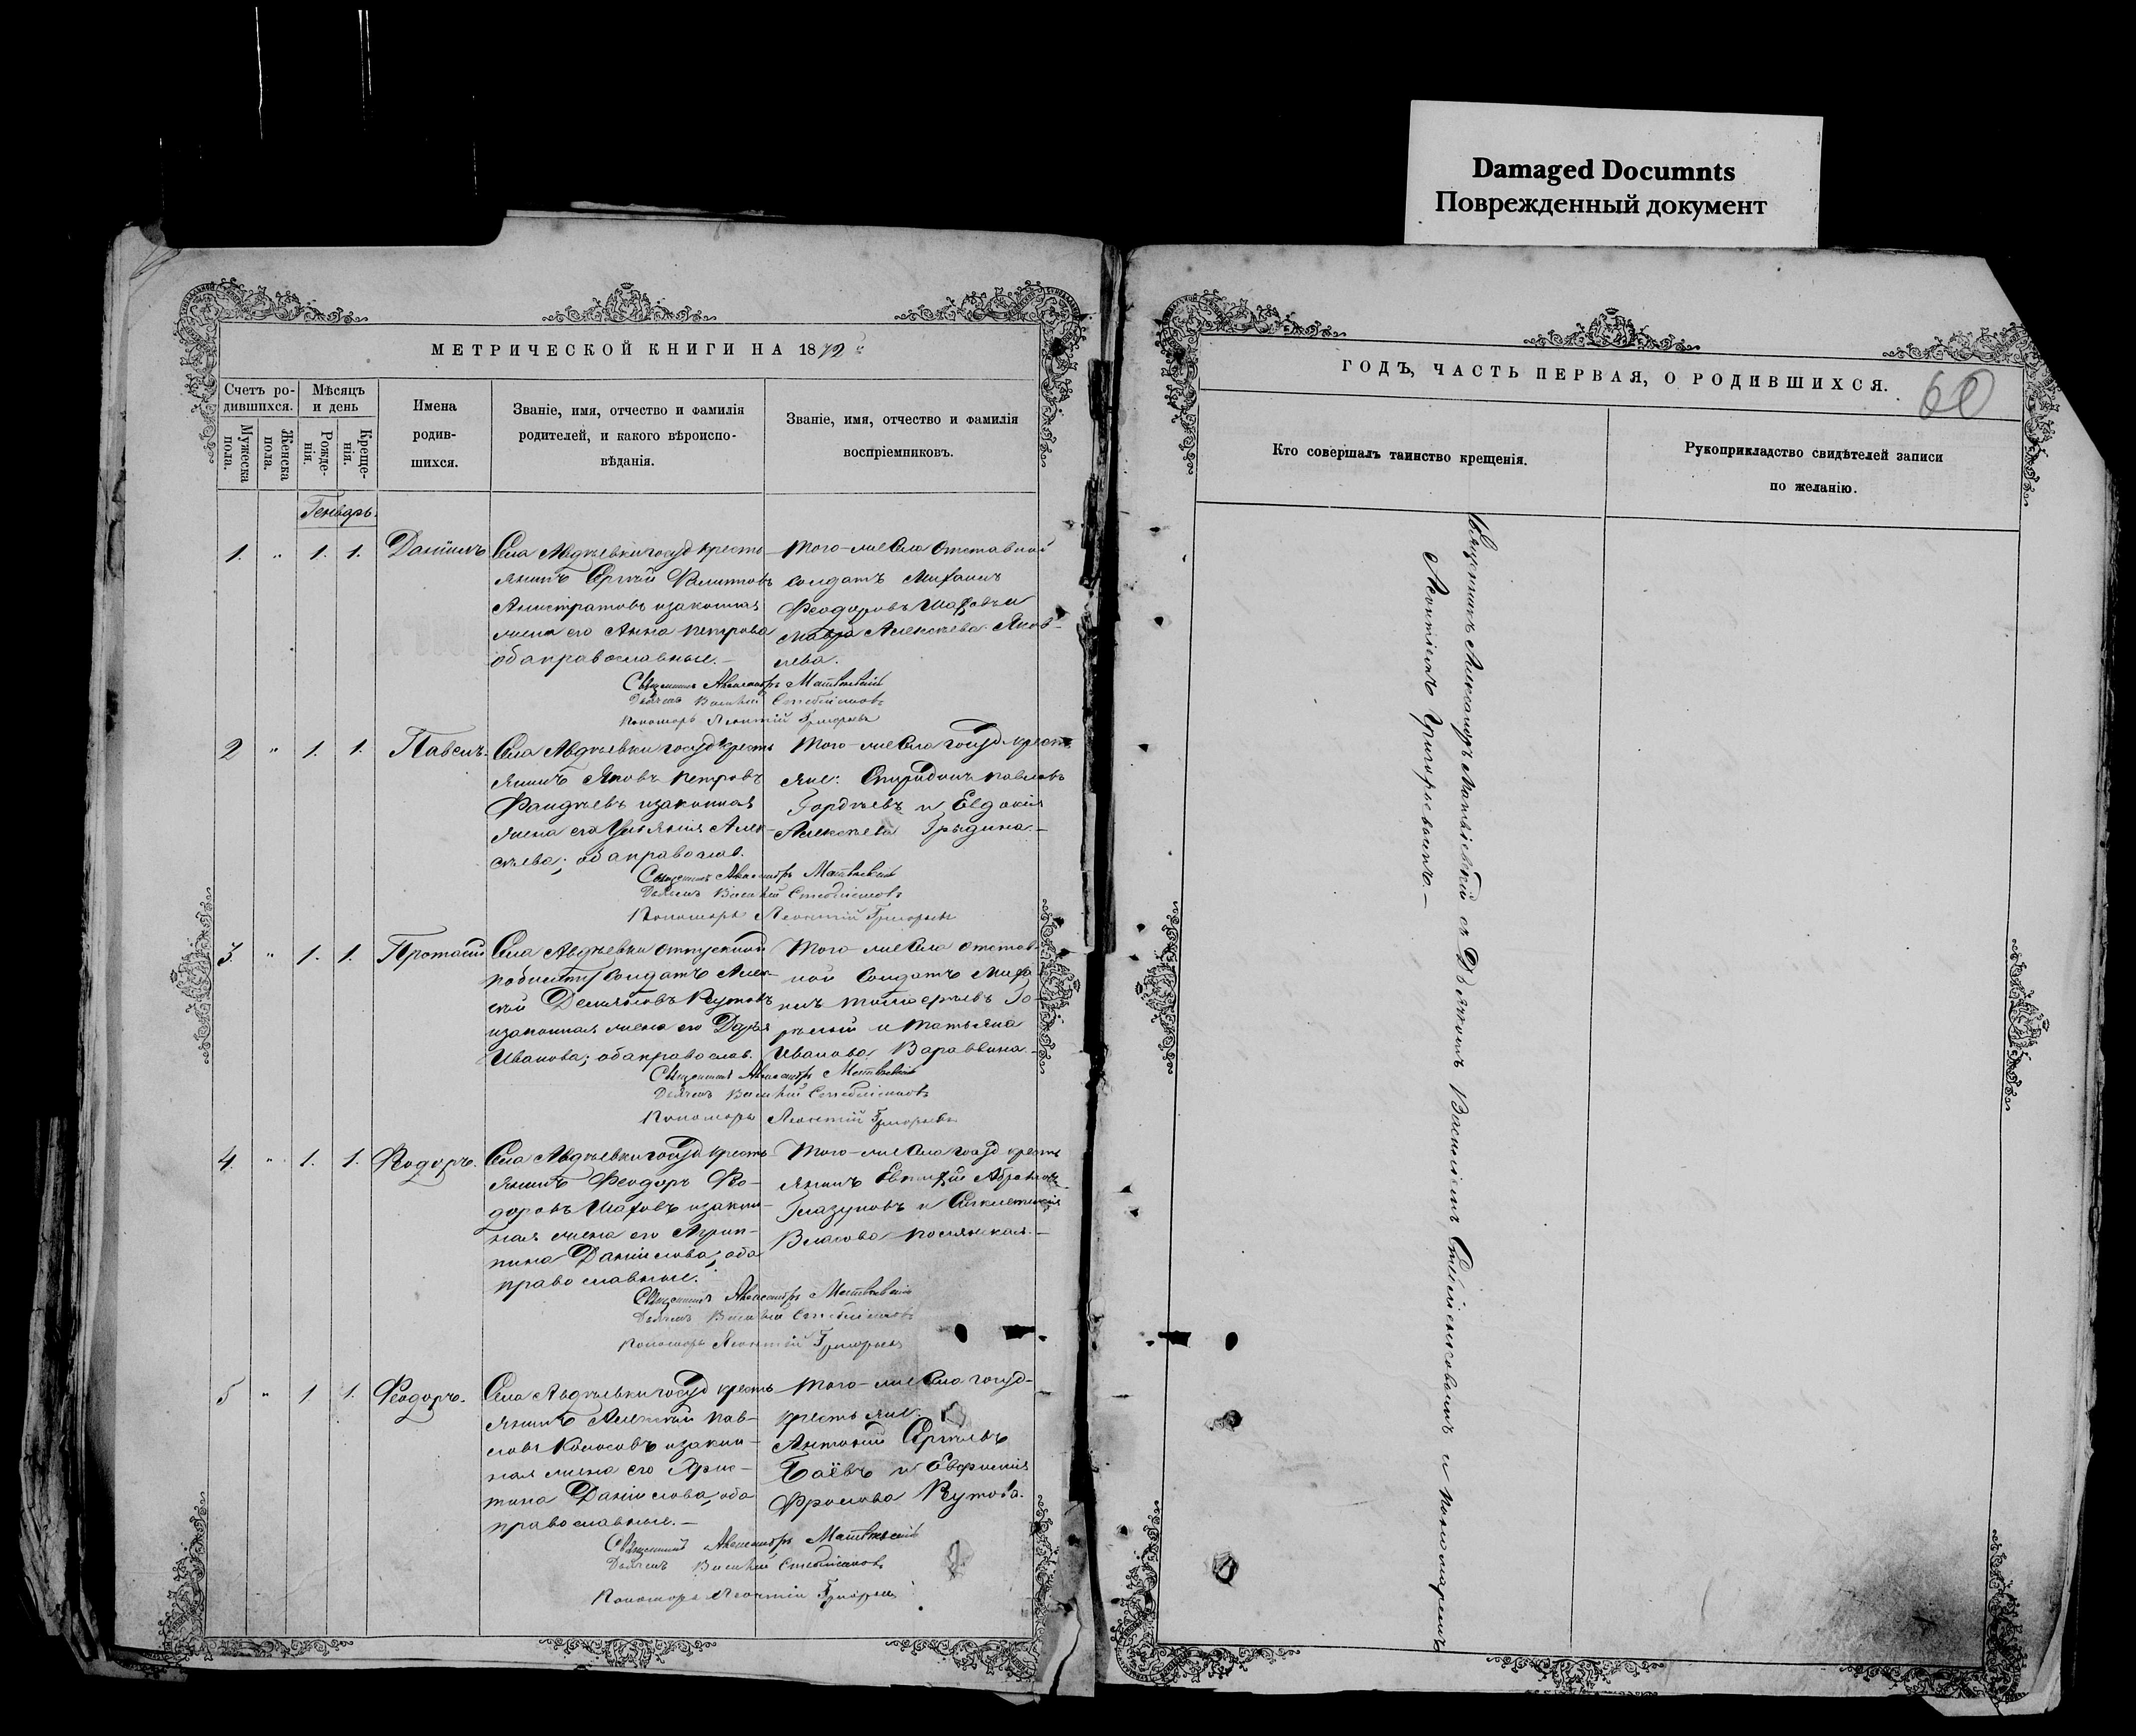 Damaged Documnts
Поврежденный документ
МЕТРИЧЕСКОЙ КНИГИ НА 1872й
Счетъ ро-
дившихся.
Мужеска
пола.
Женска
пола.
Мѣсяцъ
и день
Рожде-
нія.
Креще-
нія.
Имена
родив-
шихся.
Званіе, имя, отчество и фамилія
родителей, и какого вѣроиспо-
вѣданія.
Званіе, имя, отчество и фамилія
воспріемниковъ.
Генварь.
1. " 1. 1. Даніилъ
Села Авдѣевки госуд кресть-
янинъ Сергій Филиповъ
Алистратовъ изаконная
жена его Анна Петрова
оба православные.
Того-же Села Отставной
солдатъ Михаилъ
Феодоровъ Шаховъ и
Мавра Алексѣева Яков-
лева.
Священникъ Александръ Матвѣевскій
Дьячекъ Василій
Пономарь Леонтій Григорьевъ
2 " 1. 1. Павелъ.
Села Авдѣевки госуд кресть
янинъ Яковъ Петровъ
изаконная
жена его Ульянія Алек-
сѣева; оба православ.
Того-же Села госуд. крестъ
яне: Спиридонъ Павловъ
Гордѣевъ и Евдокія
Алексѣева Грыдина.
Священникъ Александръ Матвѣевскій
Дьячекъ Василій
Пономарь Леонтій Григорьевъ
3. " 1. 1. Протасій
Села Авдѣевки отпускной
Солдатъ Алек-
сѣй Кутовъ
изаконная жена его Дарья
Иванова; оба православ.
Того-же Села отстав-
ной Солдатъ Миха
илъ Го-
рѣлый и Татьяна
Иванова Вараввина.
Священникъ Александръ Матвѣевскій
Дьячекъ Василій
Пономарь Леонтій Григорьевъ
4. " 1. 1. Феодоръ.
Села Авдѣевки госуд кресть
янинъ Феодоръ Фео-
доровъ Шаховъ изакон-
ная жена его Агрип-
пина Даніилова; оба
православные.
Того-же Села госуд кресть
янинъ Евтихій
Глазуновъ и Синклетикія
Власова
Священникъ Александръ Матвѣевскій
Дьячекъ Василій
Пономарь Леонтій Григорьевъ
5 " 1 1. Феодоръ.
Села Авдѣевки госуд кресть
янинъ Алексѣй Пав-
ловъ Колосовъ изакон-
ная жена его Хрис-
тина Даніилова, оба
православные.
Того-же Села госуд-
крестьяне:
Антоній Сергѣевъ
Баёвъ и Евфимія
Фролова Кутова.
Священникъ Александръ Матвѣевскій
Дьячекъ Василій
Пономарь Леонтій Григорьевъ
ГОДЪ, ЧАСТЬ ПЕРВАЯ, О РОДИВШИХСЯ.
60
Кто совершалъ таинство крещенія.
Рукоприкладство свидѣтелей записи
по желанію.
Священникъ Александръ Матвѣевскій съ Дьячкомъ Василіемъ и Пономаремъ
Леонтіемъ Григорьевымъ.